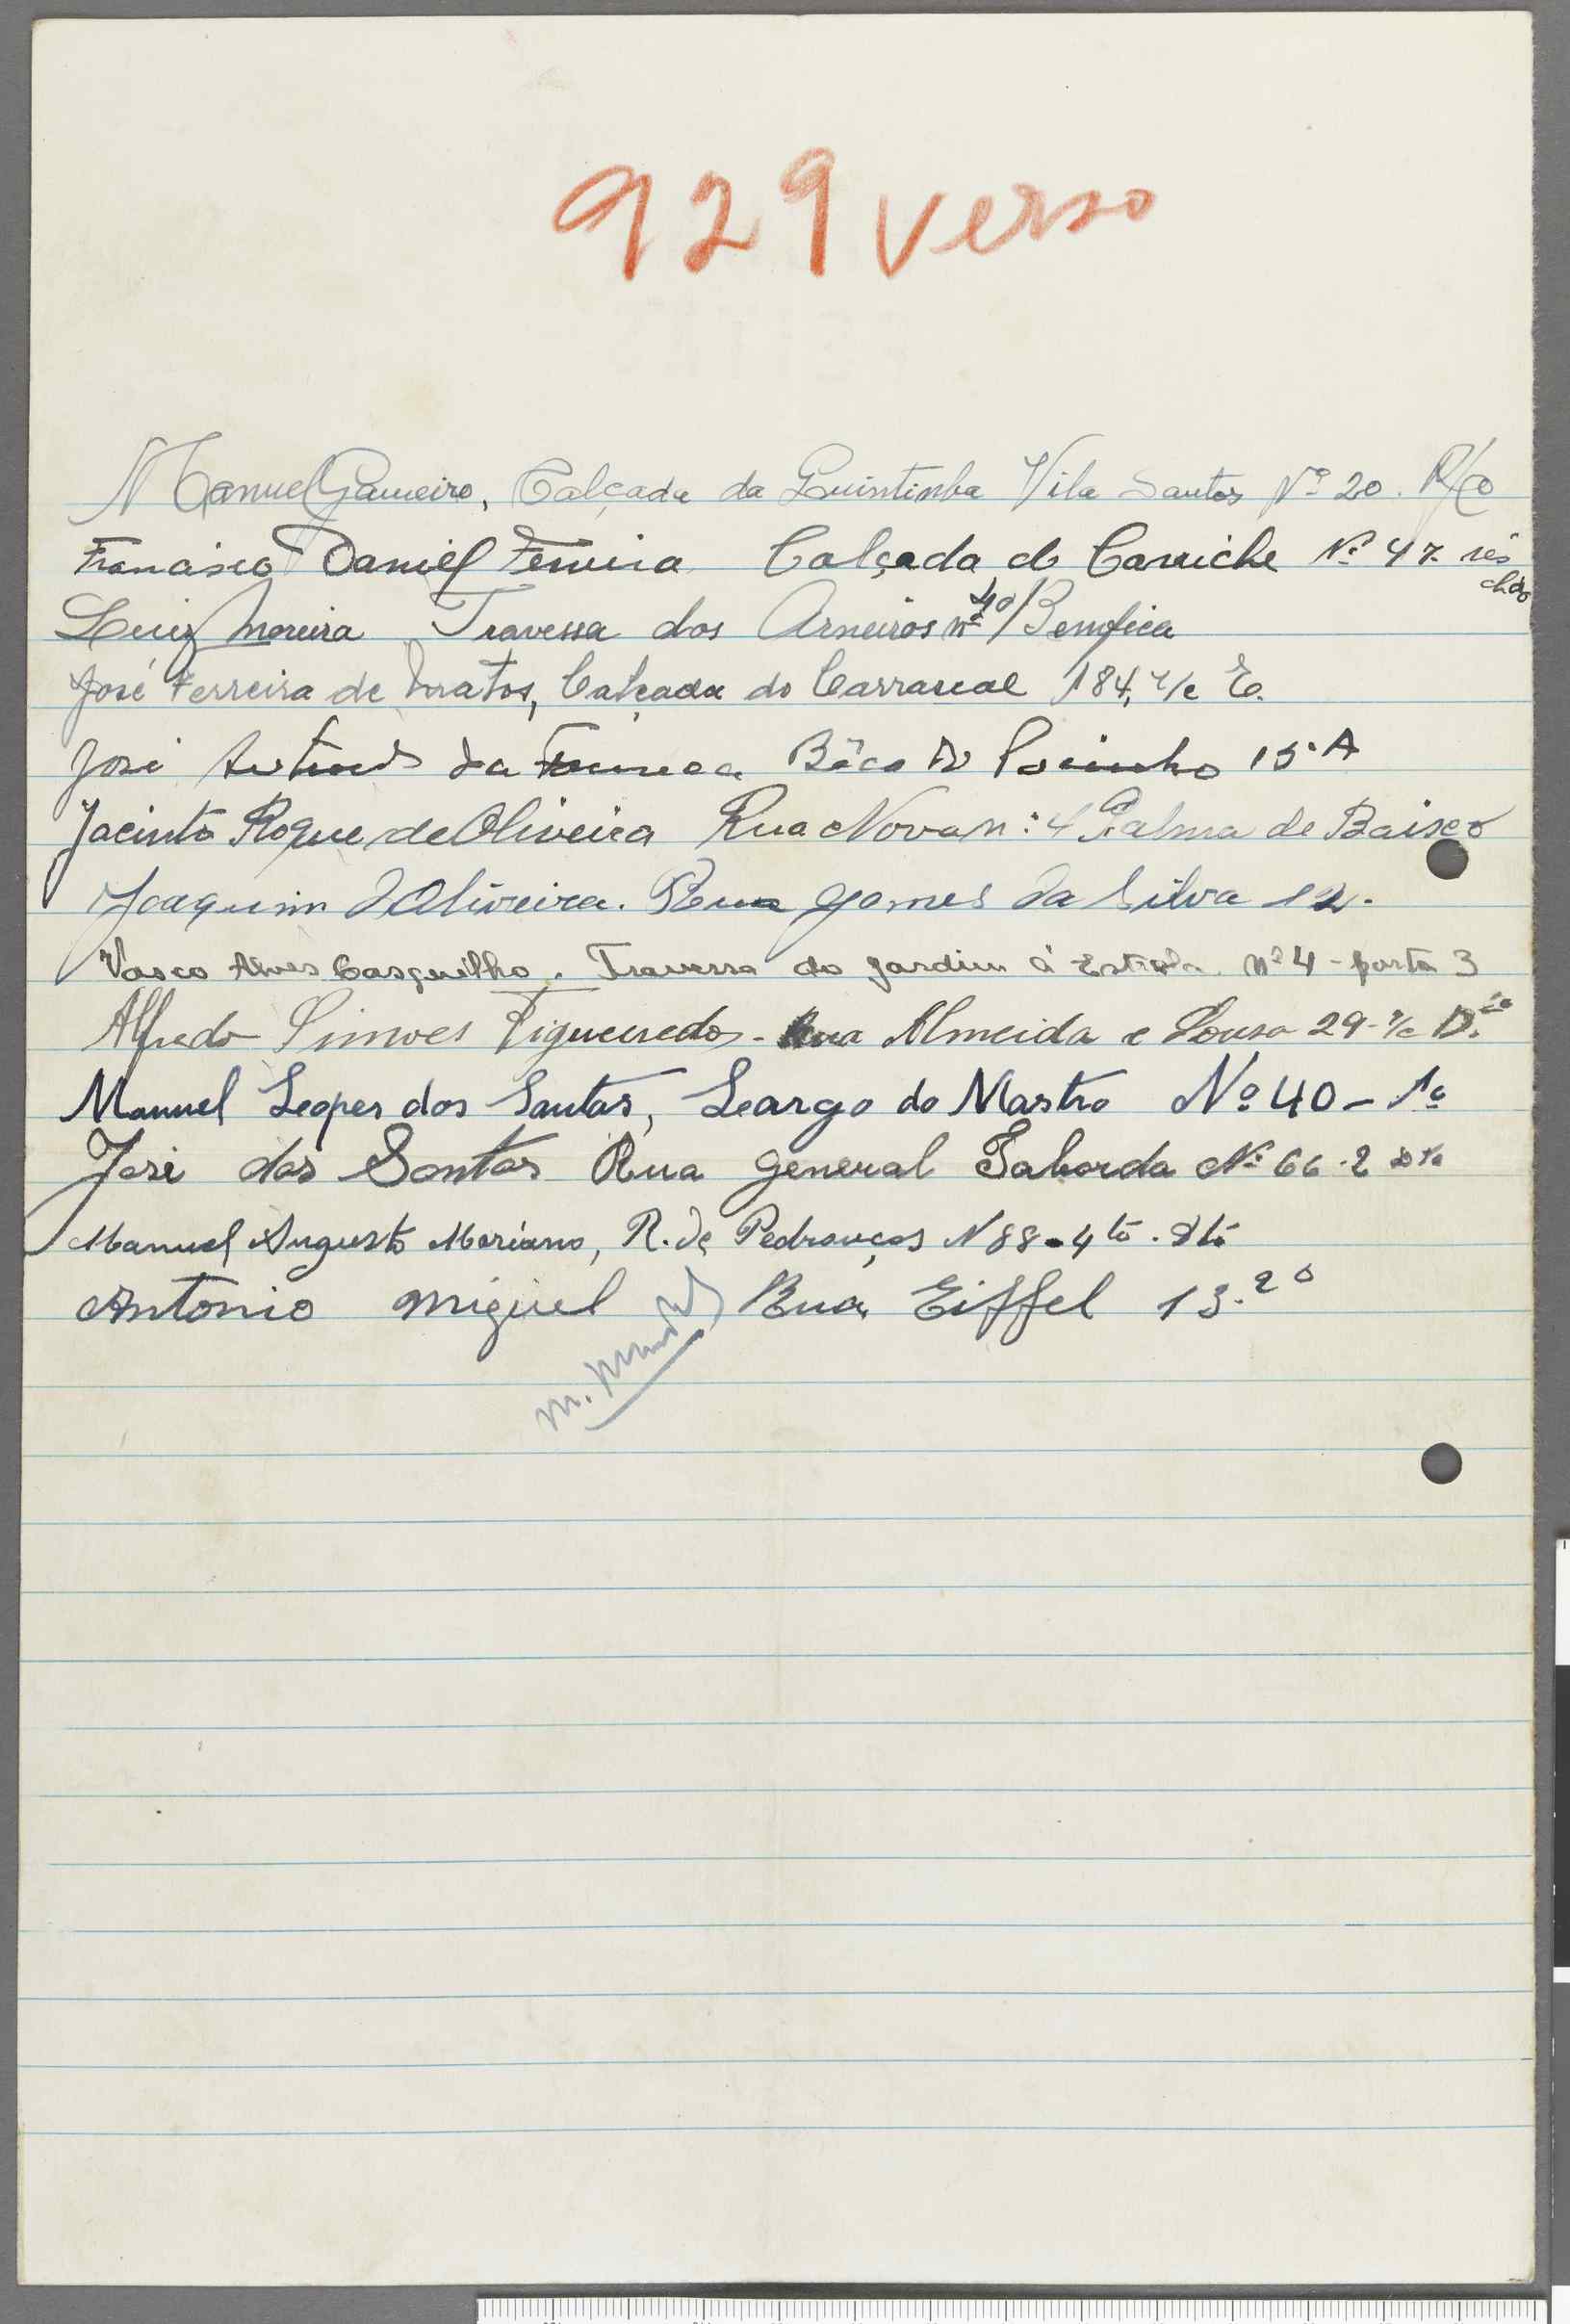 929 verso
Manuel Gameiro, Calçada da Quintinha Vila Santos Nº 20. R/c
Francisco Daniel Ferreira Calçada de Carriche Nº 47 rés chão
Luiz Moreira Travessa dos Arneiros nº 40 / Benfica
José Ferreira de Matos, Calçada do Carrascal 184, r/c E.
José da Fonseca Bêco do Pocinho 15·A
Jacinto Roque de Oliveira Rua Nova n: 4 Palma de Baixo
Joaquim d'Oliveira. Rua Gomes da Silva 12.
Vasco Alves Casquilho. Travessa do Jardim à Estrela Nº 4 - porta 3
Alfredo Simoes Figueiredo - Rua Almeida e Sousa 29 - r/c D.to
Manuel Lopes dos Santos, Largo do Mastro Nº 40 - 1º
José dos Santos Rua General Taborda Nº 66 - 2 Dto
Manuel Augusto Mariano, R. de Pedrouços N 88 - 4to. Dto
Antonio Miguel Rua Eiffel 13. 2º